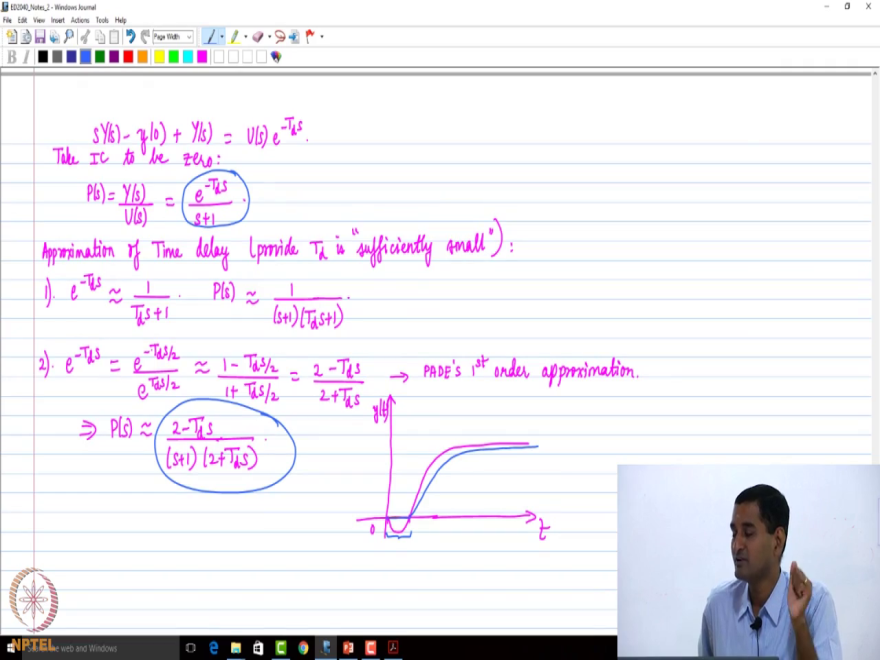 ED2040_Notes_2 - Windows Journal
File Edit View Insert Actions Tools Help
Page Width
B I
sY(s) - y(0) + Y(s) = U(s) e^{-T_d s}.
Take IC to be zero:
P(s) = Y(s)/U(s) = e^{-T_d s}/(s+1).
Approximation of Time delay (provide T_d is "sufficiently small"):
1). e^{-T_d s} ≈ 1/(T_d s+1). P(s) ≈ 1/((s+1)(T_d s+1)).
2). e^{-T_d s} = e^{-T_d s/2}/e^{T_d s/2} ≈ (1 - T_d s/2)/(1 + T_d s/2) = (2 - T_d s)/(2 + T_d s) → PADE'S 1st order approximation.
⇒ P(s) ≈ (2 - T_d s)/((s+1)(2+T_d s)).
y(t)
0
t
NPTEL
the web and Windows